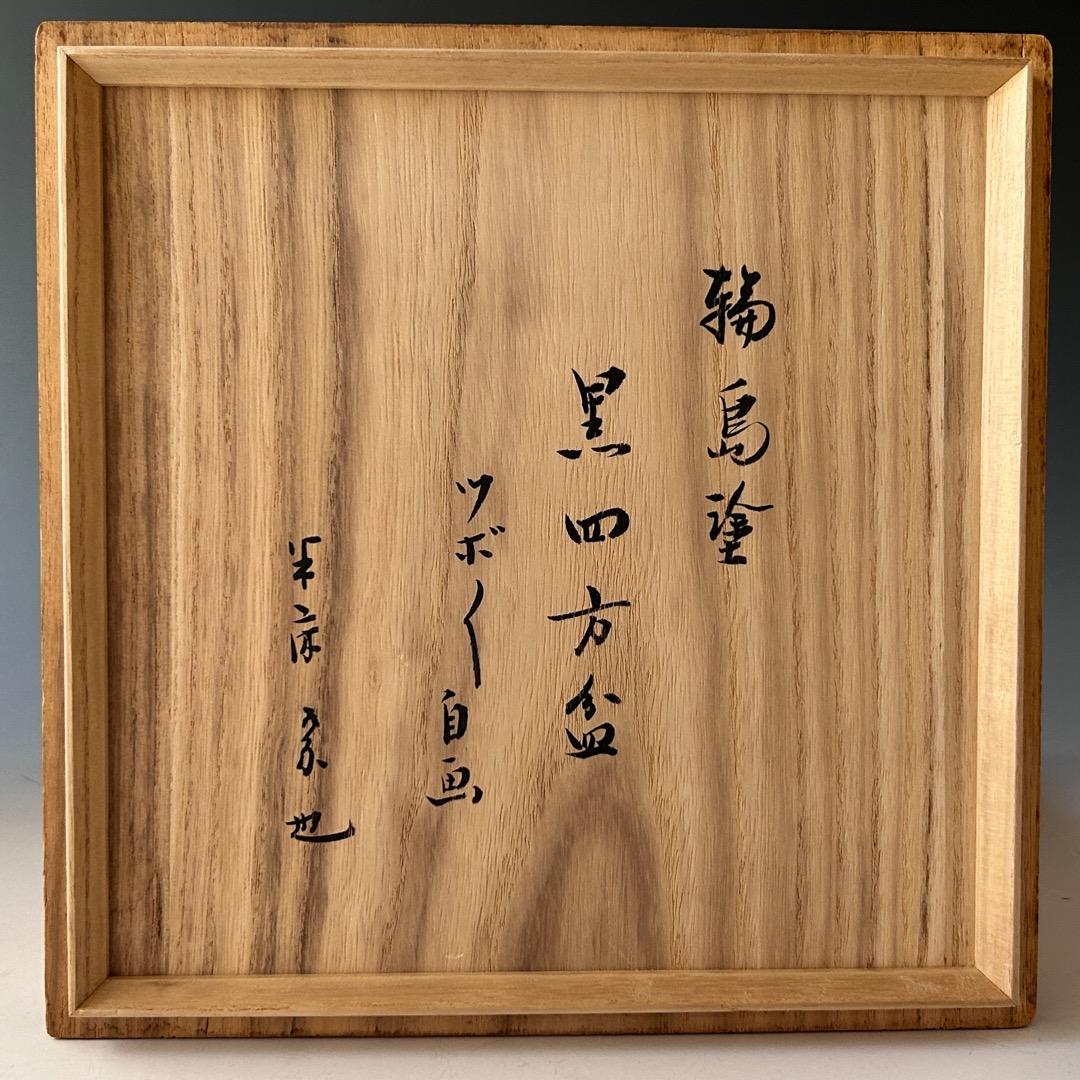 輪島塗
黒四方盆
ツボ〱自画
半床 宗也